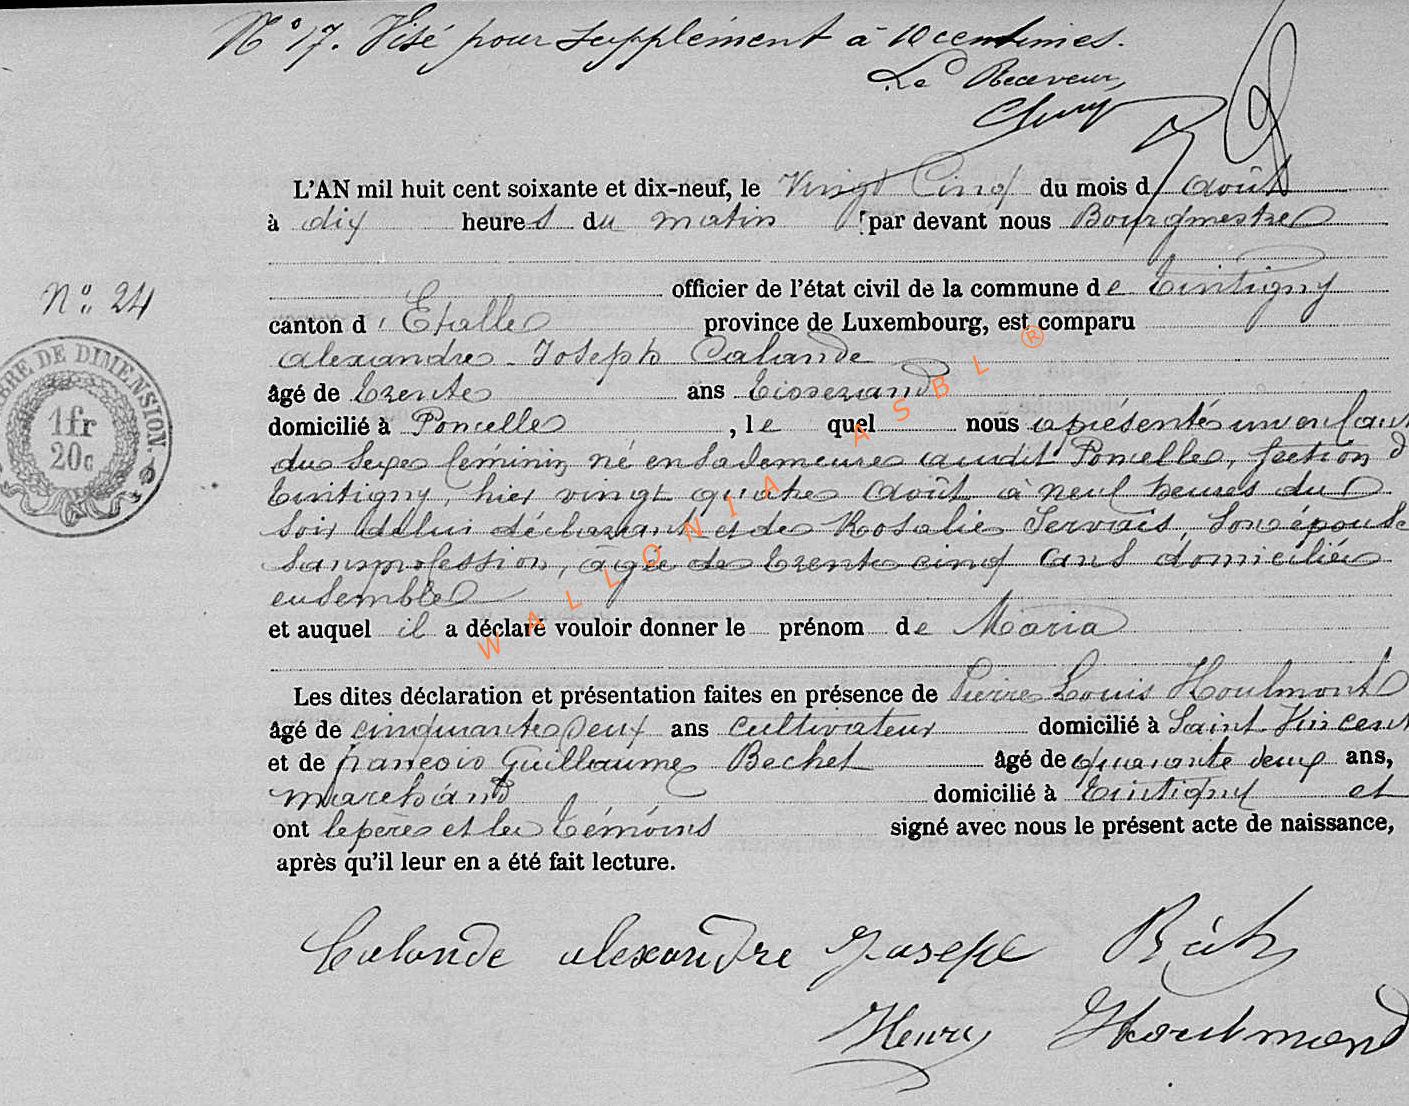 N° 17. Visé pour supplément à 10 centimes.
Le Receveur,
L'AN mil huit cent soixante et dix-neuf, le Vingt Cinq du mois d'août
à dix heures du matin par devant nous Bourgmestre
officier de l'état civil de la commune de Tintigny
N° 24
canton d'Etalle province de Luxembourg, est comparu
alexandre Joseph Calande
âgé de trente ans tisserand
domicilié à Poncelle, le quel nous a présenté un enfant
du sexe féminin né en sa demeure audit Poncelle, section d
Tintigny, hier vingt quatre Août à neuf heures du
soir de lui déclarant et de Rosalie Servais, son épouse
sans profession, âgée de trente cinq ans domiciliée
ensemble
et auquel il a déclaré vouloir donner le prénom de Maria
Les dites déclaration et présentation faites en présence de Pierre Louis Houlmont
âgé de cinquante deux ans cultivateur domicilié à Saint Vincent
et de francois Guillaume Bechet âgé de quarante deux ans,
marchand domicilié à Tintigny et
ont le père et les témoins signé avec nous le présent acte de naissance,
après qu'il leur en a été fait lecture.
Calande alexandre Joseph
Henry Houlmond
TIMBRE DE DIMENSION.
1 fr
20c
WALLONIA ASBL ®